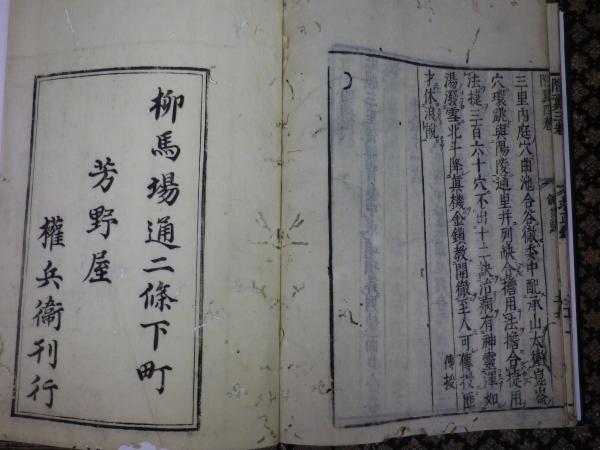 三里內庭穴曲池合谷徹委中配承山太衝崑崙
穴環跳與陽陵通里并列缺合擔用法擔合截用
法截三百六十穴不出十二訣治病有神靈渾如
湯潑雪北斗降真機金鎖教開徹至人可傳授匪
才休浪說
傳授
柳馬場通二條下町
芳野屋
權兵衞刊行